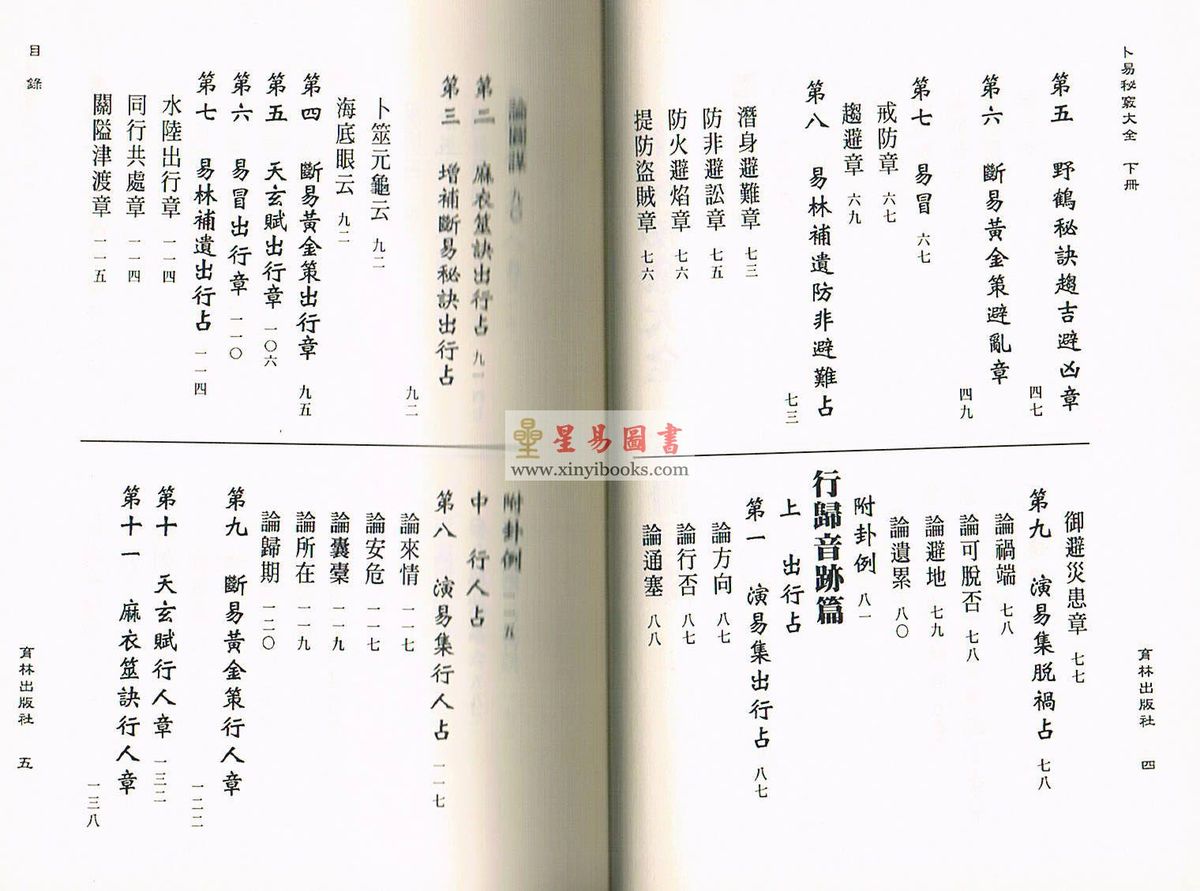 卜易秘竅大全 下冊
第五 野鶴秘訣趨吉避凶章 四七
第六 斷易黃金策避亂章 四九
第七 易冒 六七
戒防章 六七
趨避章 六九
第八 易林補遺防非避難占 七三
潛身避難章 七三
防非避訟章 七五
防火避焰章 七六
提防盜賊章 七六
御避災患章 七七
第九 演易集脱禍占 七八
論禍端 七八
論可脫否 七八
論避地 七九
論遺累 八〇
附卦例 八一
行歸音跡篇
上 出行占
第一 演易集出行占 八七
論方向 八七
論行否 八七
論通塞 八八
育林出版社 四
論圖謀 九〇
第二 麻衣筮訣出行占 九一
第三 增補斷易秘訣出行占 九二
卜筮元龜云 九二
海底眼云 九二
第四 斷易黃金策出行章 九五
第五 天玄賦出行章 一〇六
第六 易冒出行章 一一〇
第七 易林補遺出行占 一一四
水陸出行章 一一四
同行共處章 一一四
關隘津渡章 一一五
目錄
附卦例 一一五
中 行人占
第八 演易集行人占 一一七
論來情 一一七
論安危 一一七
論囊橐 一一九
論所在 一一九
論歸期 一二〇
第九 斷易黃金策行人章 一二二
第十 天玄賦行人章 一三二
第十一 麻衣筮訣行人章 一三八
育林出版社 五
星易圖書
www.xinyibooks.com